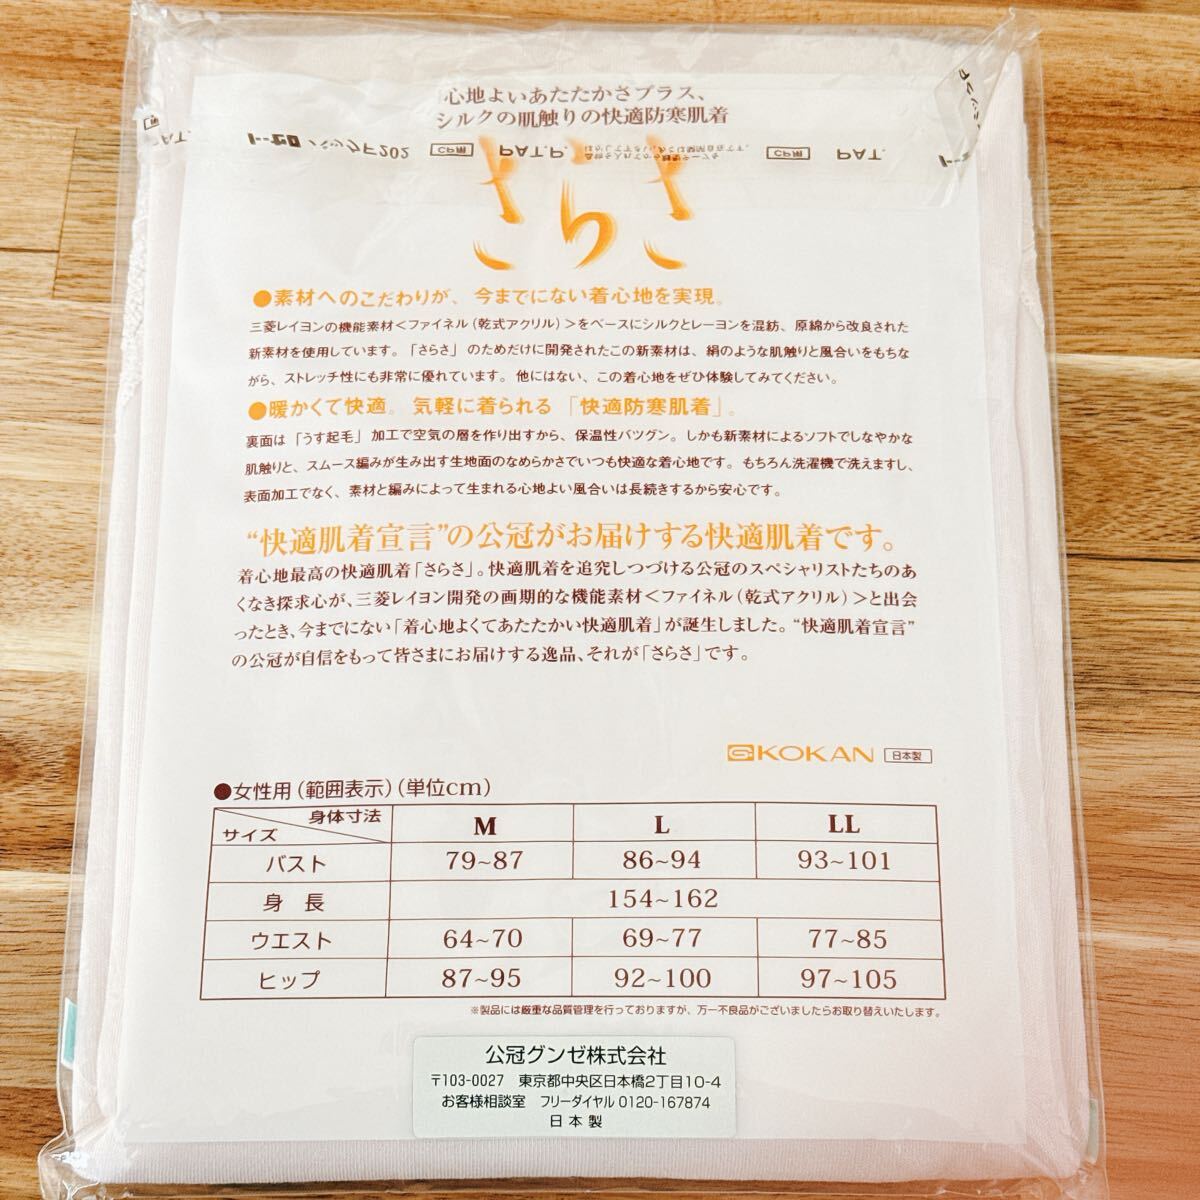 心地よいあたたかさプラス、
シルクの肌触りの快適防寒肌着
トーセロ バックF202 CP用 PAT.P. CP用 PAT.
さらさ
●素材へのこだわりが、今までにない着心地を実現。
三菱レイヨンの機能素材<ファイネル(乾式アクリル)>をベースにシルクとレーヨンを混紡、原綿から改良された
新素材を使用しています。「さらさ」のためだけに開発されたこの新素材は、絹のような肌触りと風合いをもちな
がら、ストレッチ性にも非常に優れています。他にはない、この着心地をぜひ体験してみてください。
●暖かくて快適。気軽に着られる「快適防寒肌着」。
裏面は「うす起毛」加工で空気の層を作り出すから、保温性バツグン。しかも新素材によるソフトでしなやかな
肌触りと、スムース編みが生み出す生地面のなめらかさでいつも快適な着心地です。もちろん洗濯機で洗えますし、
表面加工でなく、素材と編みによって生まれる心地よい風合いは長続きするから安心です。
“快適肌着宣言”の公冠がお届けする快適肌着です。
着心地最高の快適肌着「さらさ」。快適肌着を追究しつづける公冠のスペシャリストたちのあ
くなき探求心が、三菱レイヨン開発の画期的な機能素材<ファイネル(乾式アクリル)>と出会
ったとき、今までにない「着心地よくてあたたかい快適肌着」が誕生しました。“快適肌着宣言”
の公冠が自信をもって皆さまにお届けする逸品、それが「さらさ」です。
KOKAN 日本製
●女性用(範囲表示)(単位cm)
身体寸法 サイズ M L LL
バスト 79~87 86~94 93~101
身長 154~162
ウエスト 64~70 69~77 77~85
ヒップ 87~95 92~100 97~105
※製品には厳重な品質管理を行っておりますが、万一不良品がございましたらお取り替えいたします。
公冠グンゼ株式会社
〒103-0027 東京都中央区日本橋2丁目10-4
お客様相談室 フリーダイヤル 0120-167874
日本製